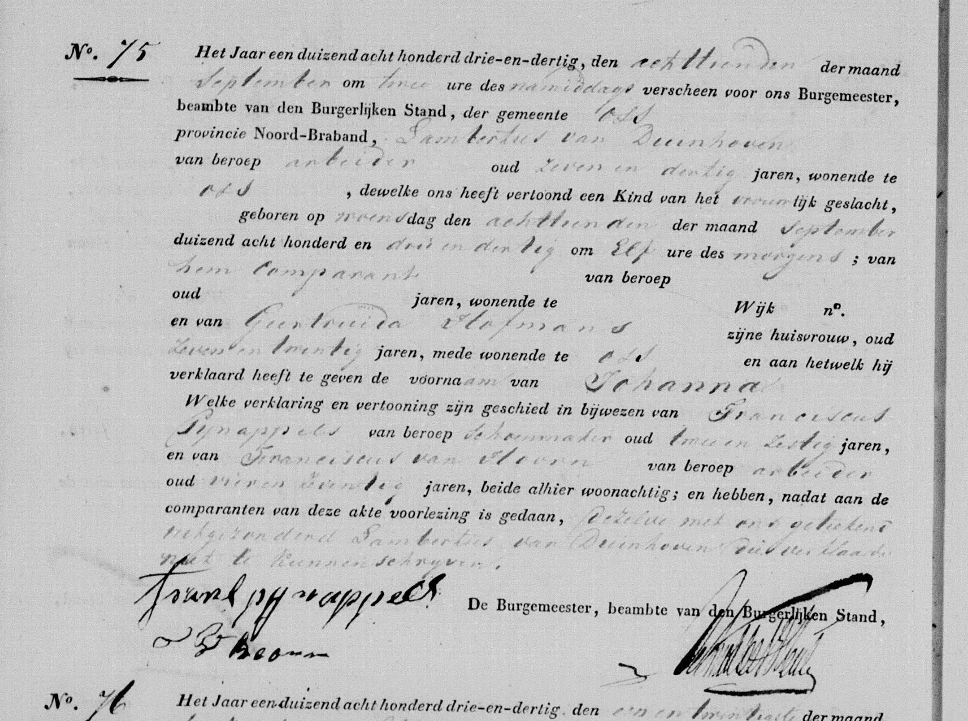 No. 75 Het Jaar een duizend acht honderd drie-en-dertig, den achttienden der maand
September om twee ure des namiddags verscheen voor ons Burgemeester,
beambte van den Burgerlijken Stand, der gemeente Oss
provincie Noord-Braband, Lambertus van Duinhoven
van beroep arbeider oud zeven en dertig jaren, wonende te
Oss , dewelke ons heeft vertoond een Kind van het vrouwlijk geslacht,
geboren op woensdag den achttienden der maand September
duizend acht honderd en drie en dertig om Elf ure des morgens ; van
hem Comparant van beroep
oud jaren, wonende te Wijk no.
en van Gertruida Hofmans zijne huisvrouw, oud
Zeven en twintig jaren, mede wonende te Oss en aan hetwelk hij
verklaard heeft te geven de voornaam van Johanna
Welke verklaring en vertooning zijn geschied in bijwezen van Franciscus
Pynappels van beroep Schoenmaker oud twee en Zestig jaren,
en van Franciscus van Hoorn van beroep arbeider
oud vier en jaren, beide alhier woonachtig; en hebben, nadat aan de
comparanten van deze akte voorlezing is gedaan, dezelve met ons getekend
uitgezonderd Lambertus van Duinhoven die verklaarde
niet te kunnen schryven.
pynappels De Burgemeester, beambte van den Burgerlijken Stand,
No. 76 Het Jaar een duizend acht honderd drie-en-dertig, den een en twintigste der maand